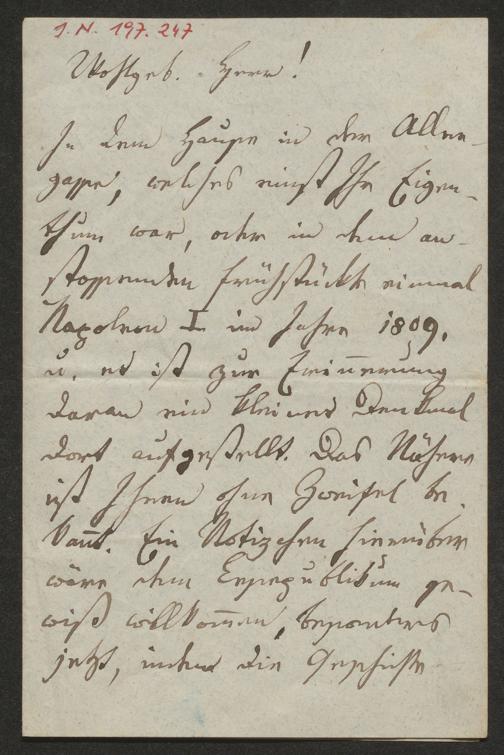 I. N. 197.247
Wohlgeb. Herr!
In dem Hause in der Alleen-
gasse, welches einst Ihr Eigen-
thum war, oder in dem an-
stossenden frühstückte einmal
Napoleon I. im Jahre 1809.
u. es ist zur Erinnerung
daran ein kleines Denkmal
dort aufgestellt. Das Nähere
ist Ihnen ohne Zweifel be-
kannt. Ein Notizchen hierüber
wäre dem Lesepublikum ge-
wiß willkommen, besonders
jetzt, indem die Geschichte